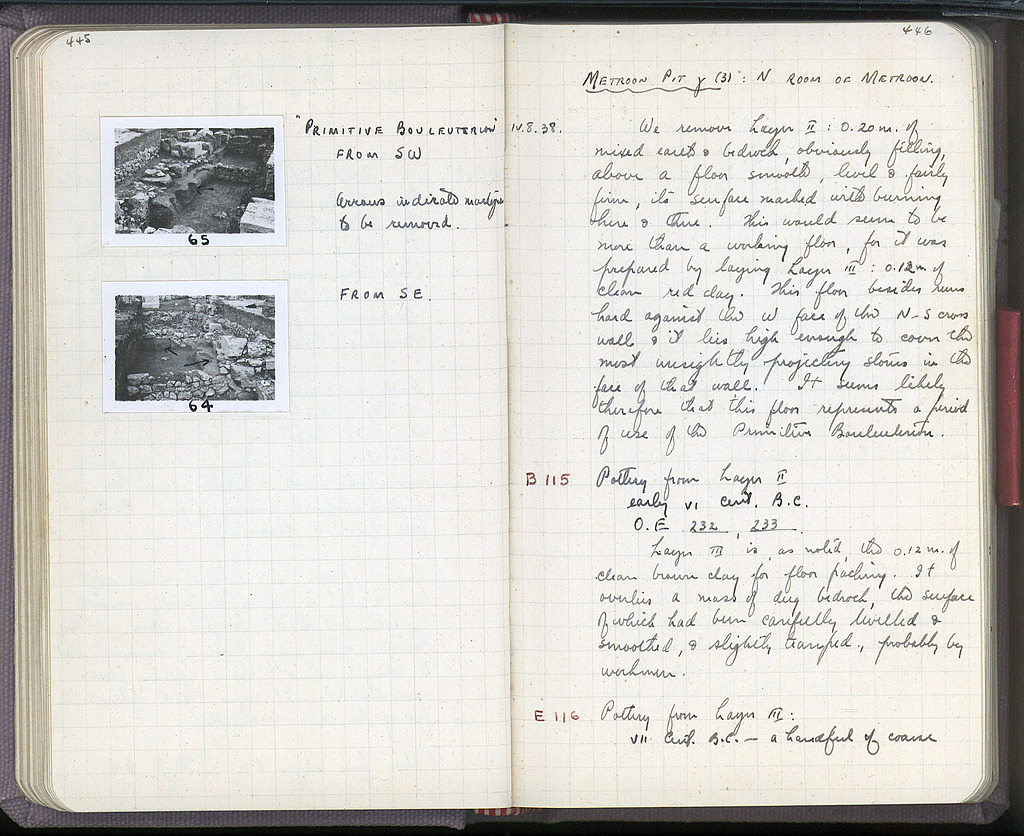 445
"PRIMITIVE BOULEUTERION"
FROM SW
Arrows indicate martyrs
to be removed.
65
FROM SE.
64
446
METROON PIT γ (3): N ROOM OF METROON.
IV.8.38.
We remove Layer II : 0.20 m. of
mixed earth & bedrock, obviously filling,
above a floor smooth, level & fairly
firm, its surface marked with burning
here & there. This would seem to be
more than a working floor, for it was
prepared by laying Layer III : 0.12 m of
clean red clay. This floor besides runs
hard against the W face of the N-S cross
wall & it lies high enough to cover the
most unsightly projecting stones in the
face of that wall. It seems likely
therefore that this floor represents a period
of use of the Primitive Bouleuterion.
B 115 Pottery from Layer II
early VI cent. B.C.
O.E 232, 233
Layer III is, as noted, the 0.12 m. of
clean brown clay for floor packing. It
overlies a mass of dug bedrock, the surface
of which had been carefully levelled &
smoothed, & slightly tramped, probably by
workmen.
E 116 Pottery from Layer III:
VII cent. B.C. – a handful of coarse